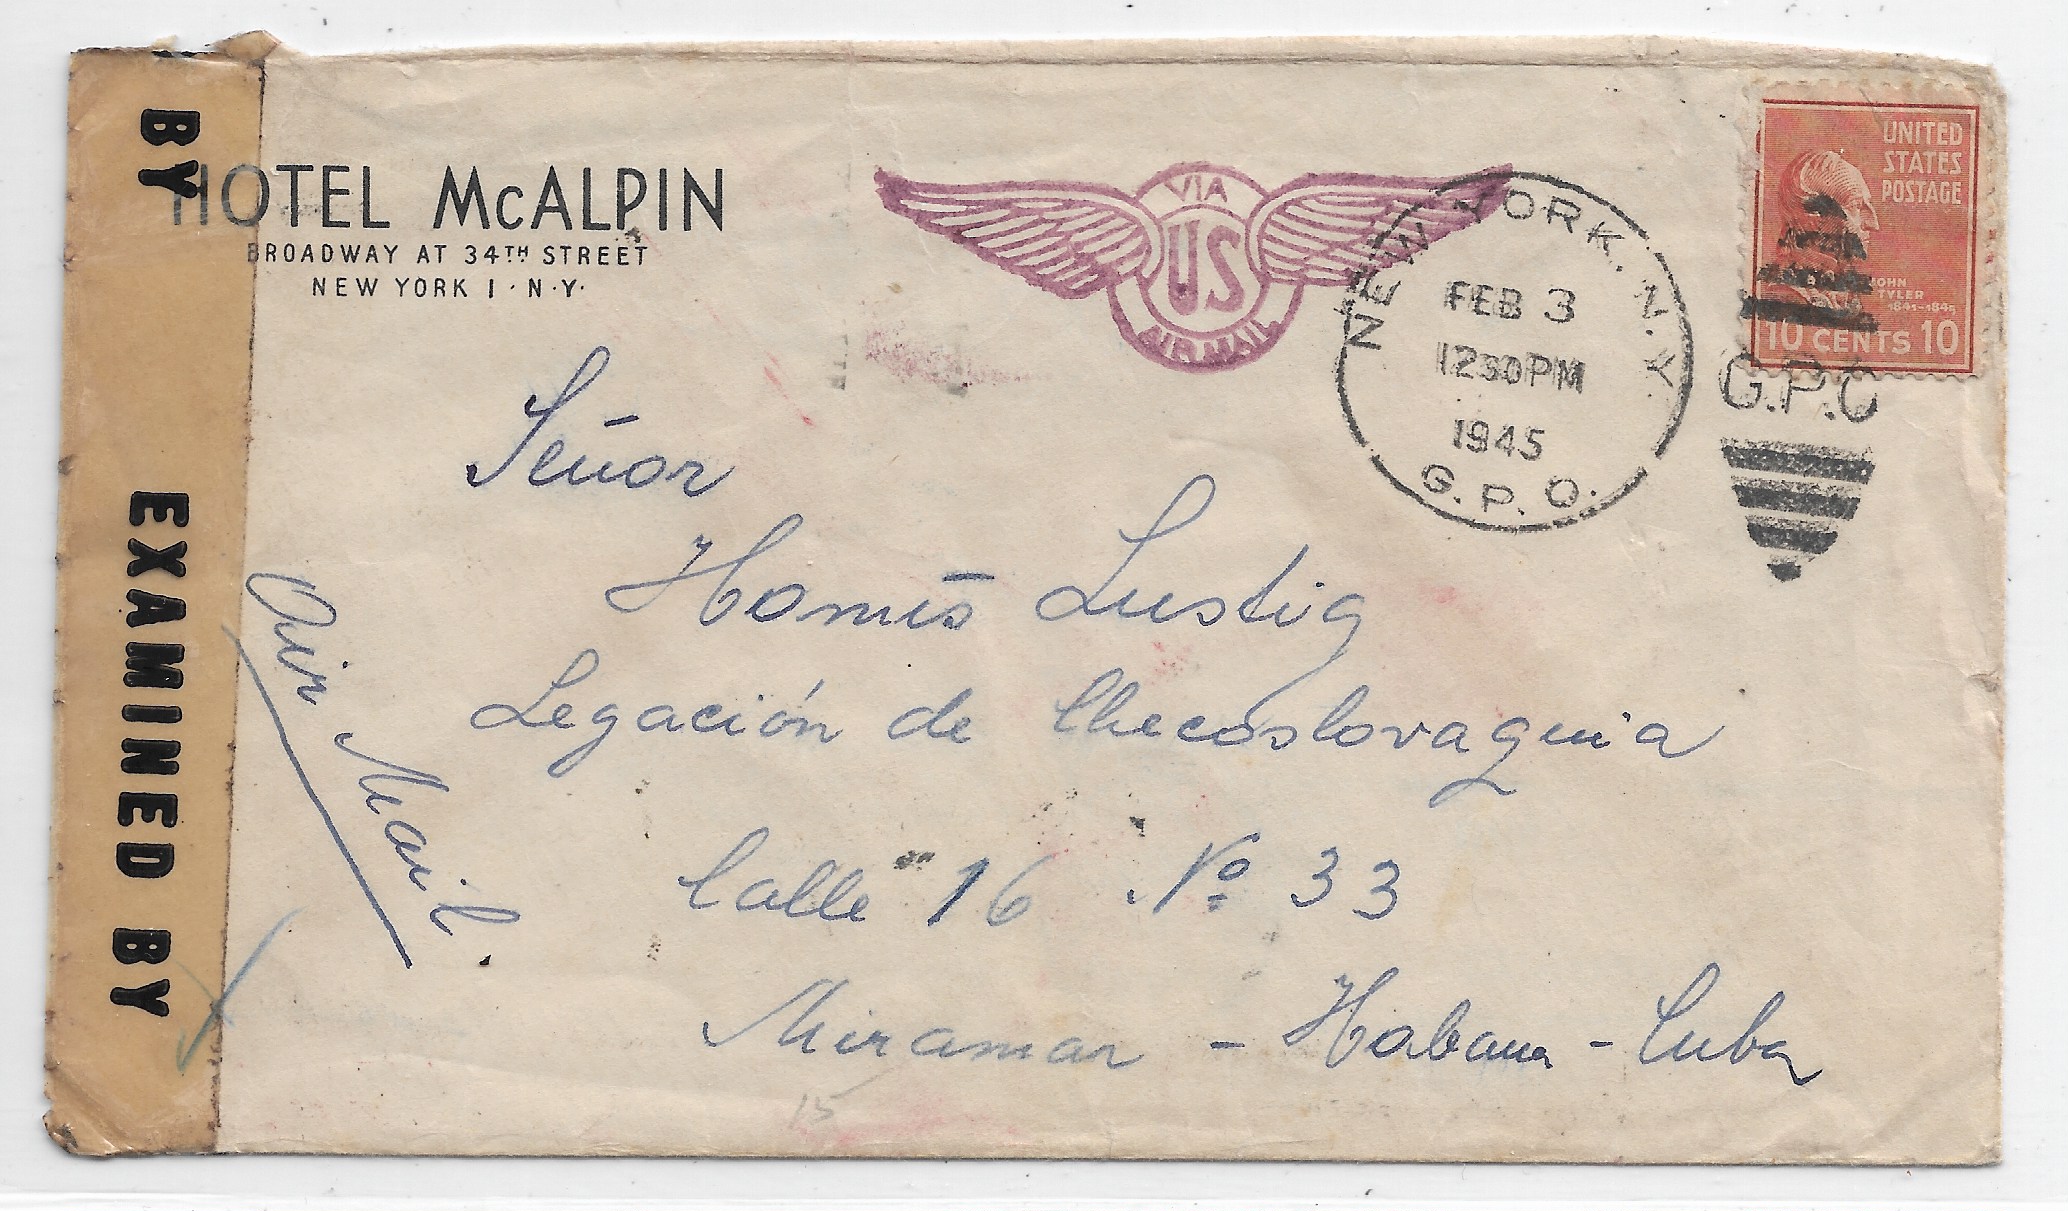 BY
EXAMINED BY
HOTEL McALPIN
BROADWAY AT 34TH STREET
NEW YORK 1 · N·Y·
VIA
US
AIR MAIL
NEW YORK, N.Y.
FEB 3
1230PM
1945
G.P.O.
G.P.O
UNITED
STATES
POSTAGE
JOHN
TYLER
1841-1845
10 CENTS 10
Señor
Lustig
Legación de Checoslovaquia
Calle 16 Nº 33
Miramar - Habana - Cuba
Air Mail.
15